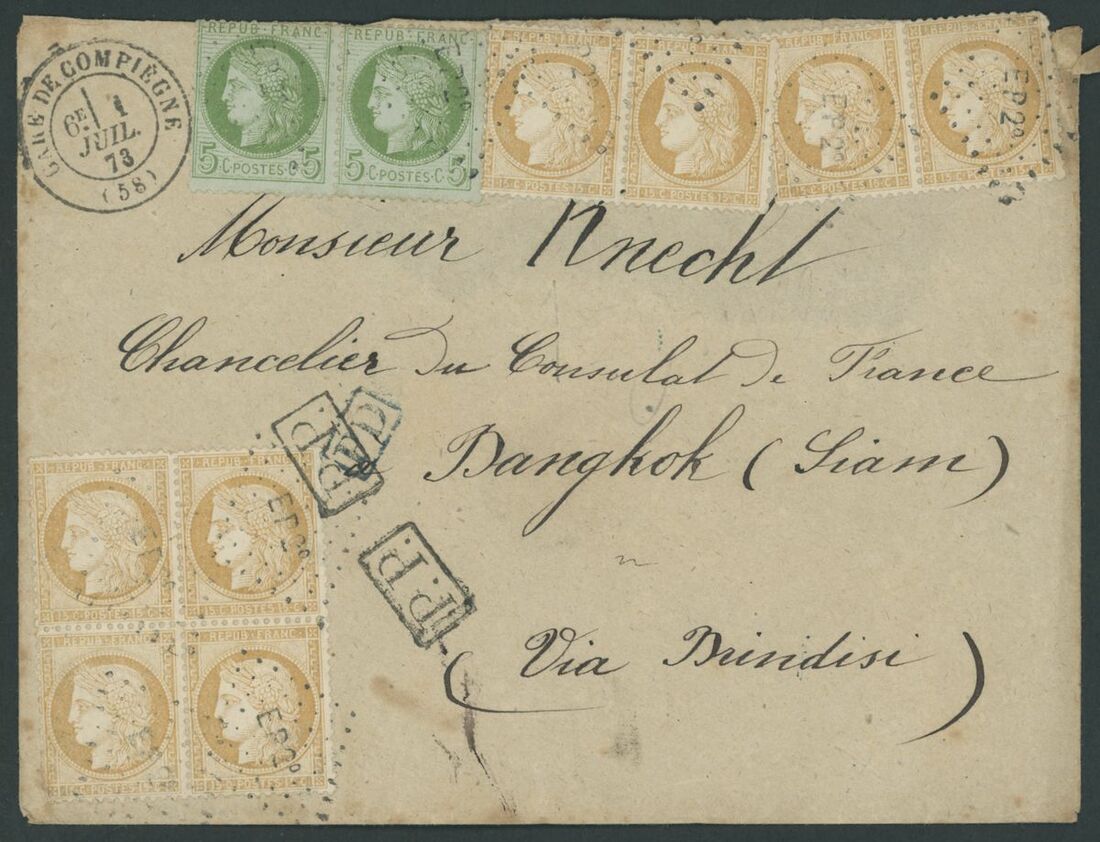 GARE DE COMPIÈGNE
6E 1
JUIL.
73
(58)
REPUB·FRANC
5·C·POSTES·C·5
REPUB·FRANC
5·C·POSTES·C·5
15·C·POSTES·15·C
15·C·POSTES·15·C
15·C·POSTES·15·C
EP2°
EP2°
Monsieur Knecht
Chancelier du Consulat de France
Bangkok (Siam)
P.P.
PD
P.P.
(Via Brindisi)
REPUB·FRANC
15·C·POSTES·15·C
REPUB·FRANC
15·C·POSTES·15·C
EP2°
REPUB·FRANC
15·C·POSTES·15·C
REPUB·FRANC
15·C·POSTES·15·C
EP2°